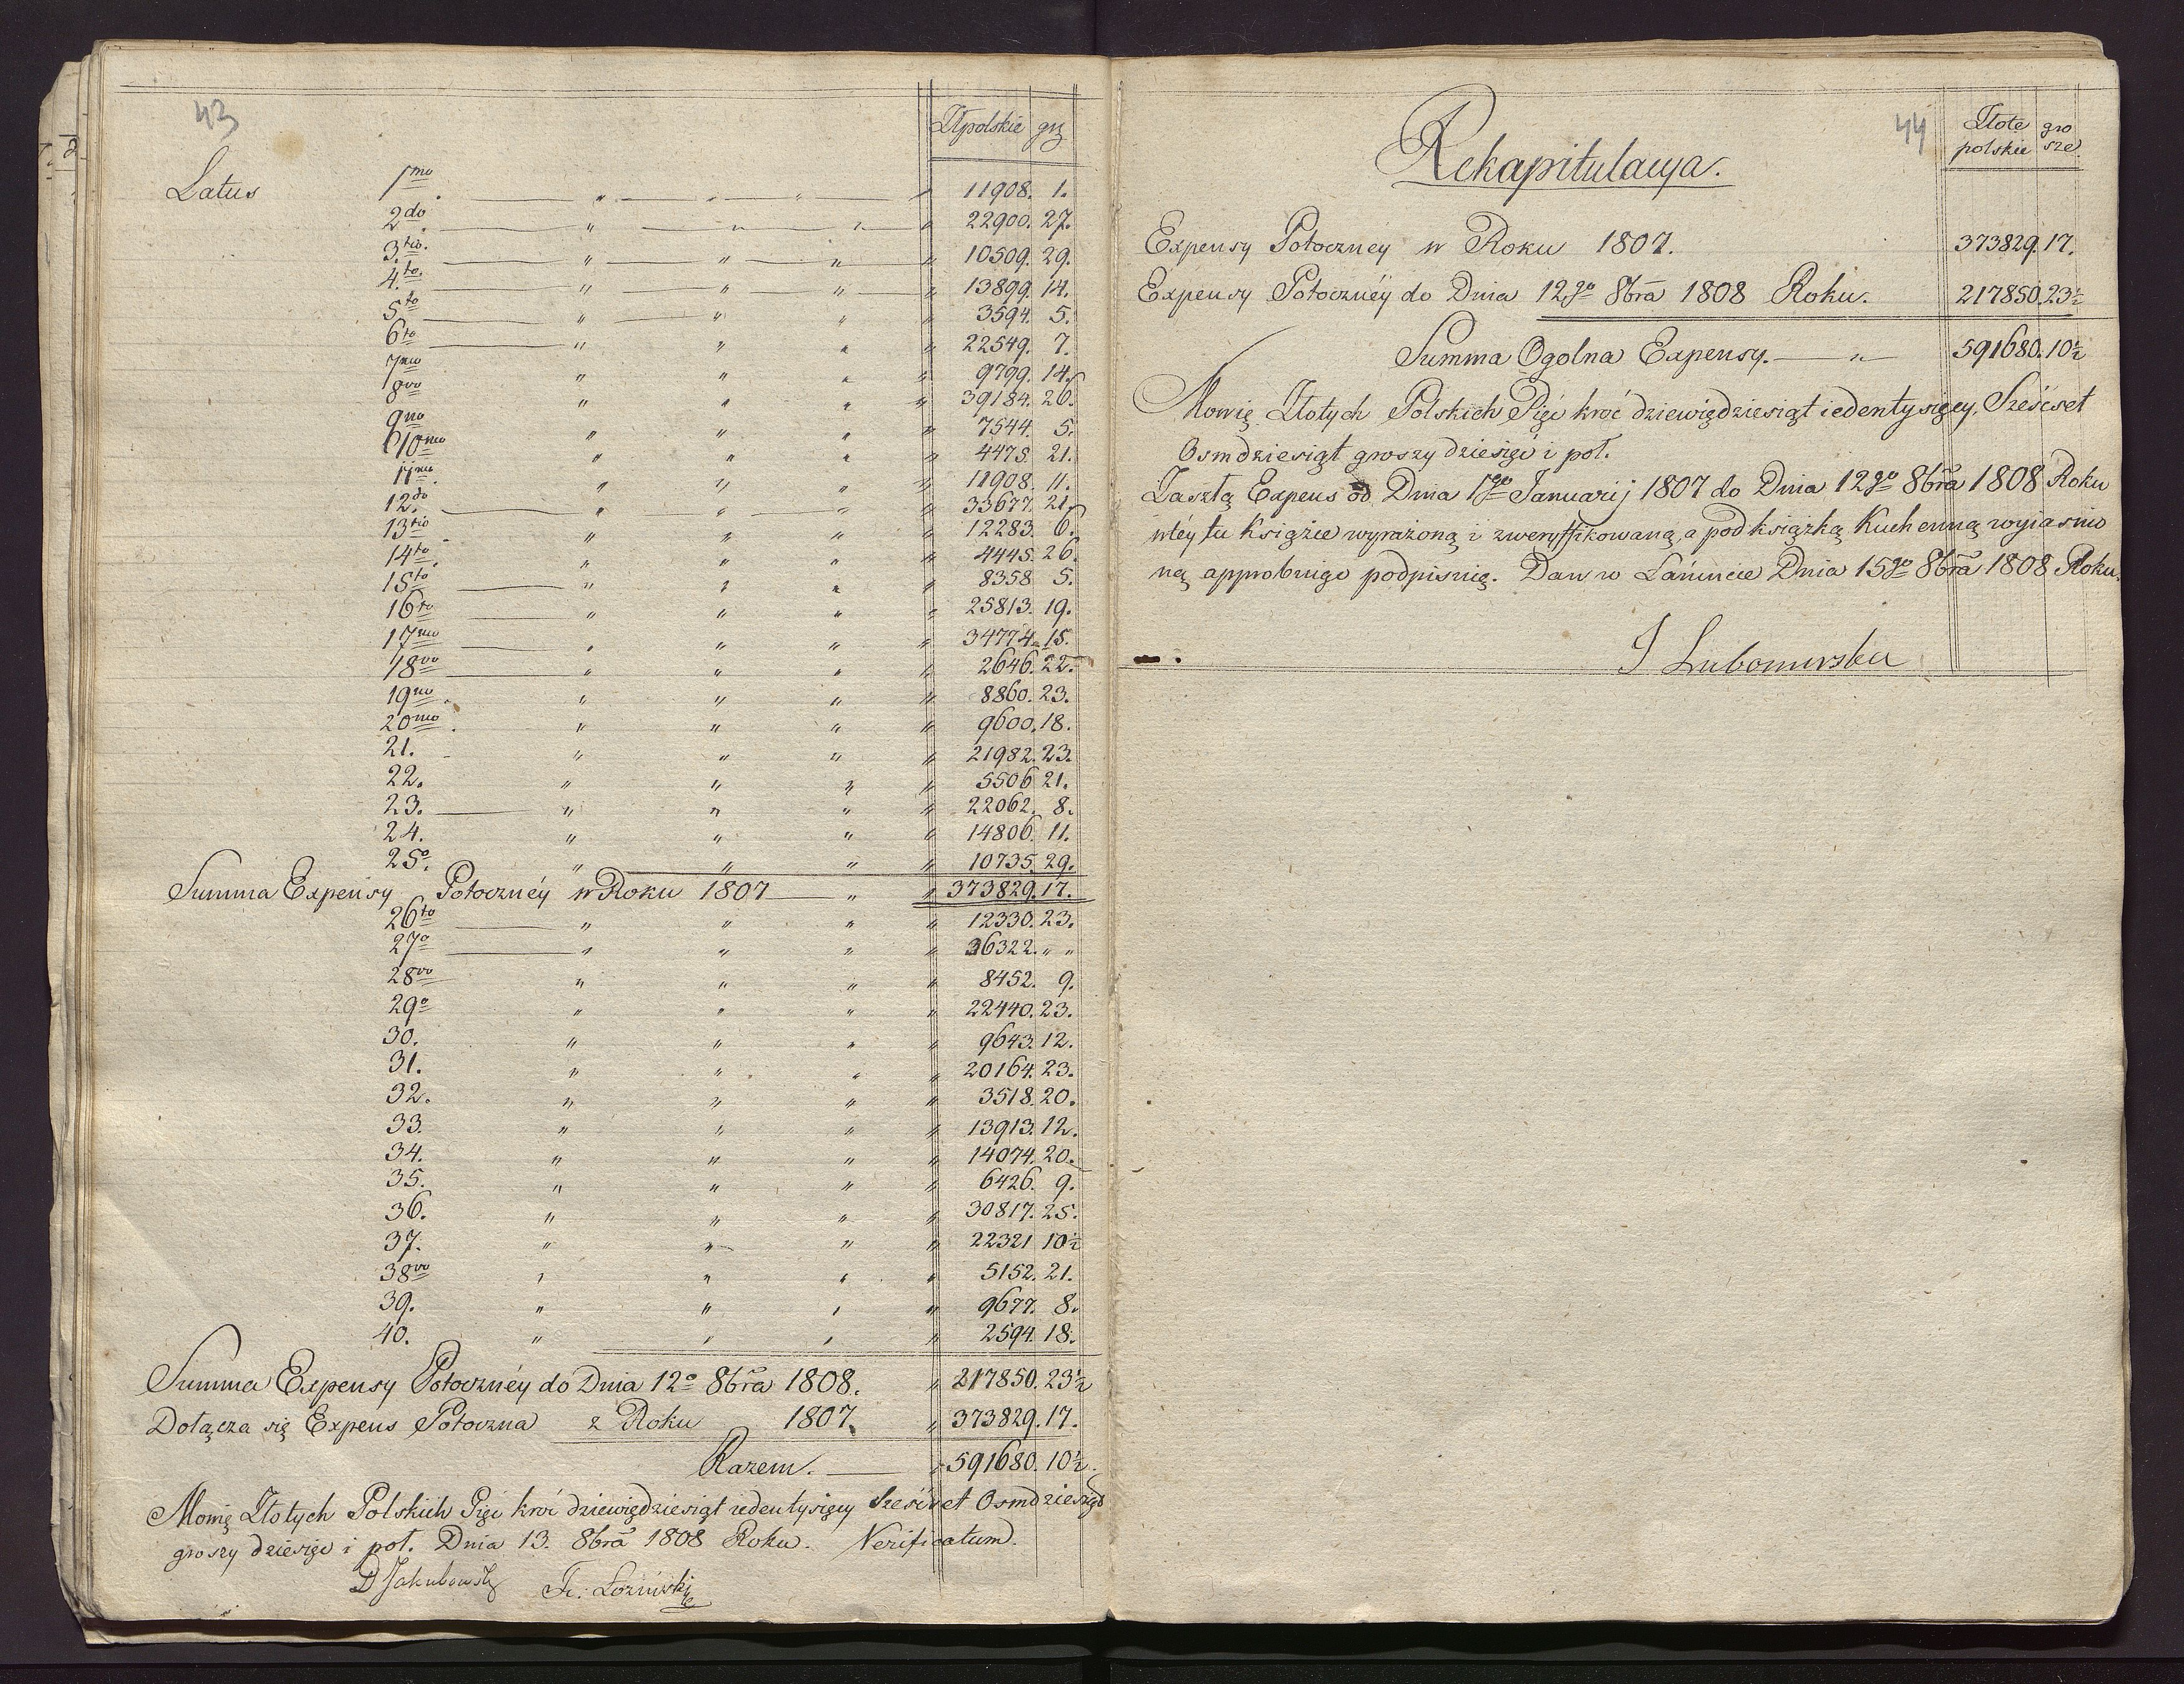 43
Złpolskie grz
Latus 1mo. " " " " 11908. 1.
2do. " " " 22900. 27.
3tio. " " " " 10509. 29.
4to. " " " " 13899. 14.
5to " " " " 3594. 5.
6to " " " " 22549. 7.
7mo " " " " 9799. 14.
8vo " " " " 39184. 26.
9no " " " " 7544. 5.
10mo " " " " 4475. 21.
11mo. " " " " 11908. 11.
12do. " " " " 33677. 21.
13tio. " " " " 12283. 6.
14to. " " " " 4445. 26.
15to " " " " 8358 5.
16to " " " " 25813. 19.
17mo " " " " 34774. 15.
18vo " " " " 2646. 22.
19no. " " " " 8860. 23.
20mo. " " " " 9600. 18.
21. " " " " 21982. 23.
22. " " " " 5506 21.
23. " " " " 22062. 8.
24. " " " " 14806 11.
25o. " " " " 10735. 29.
Summa Expensy Potoczney w Roku 1807 " " 373829. 17.
26to " " " " 12330. 23.
27o " " " " 36322. " "
28vo " " " " 8452. 9.
29o " " " " 22440. 23.
30. " " " " 9643. 12.
31. " " " " 20164. 23.
32. " " " " 3518. 20.
33. " " " " 13913. 12.
34. " " " " 14074. 20.
35. " " " " 6426. 9.
36. " " " " 30817. 25.
37. " " " " 22321 10½
38vo " " " " 5152. 21.
39. " " " " 9677. 8.
40. " " " " 2594. 18.
Summa Expensy Potoczney do Dnia 12o 8bra 1808. " 217850. 23½
Dołącza się Expens Potoczna z Roku 1807. " 373829. 17.
Razem. " 591680. 10½
Mowię Złotych Polskich Pięć kroć dziewięćdziesiąt ieden tysięcy Sześćset Osmdziesiąt
groszy dziesięć i poł. Dnia 13. 8bra 1808 Roku. Verificatum.
D Jakubowski Fr: Łoziński
44
Rekapitulacya.
Złote polskie gro sze
Expensy Potoczney w Roku 1807. 373829. 17.
Expensy Potoczney do Dnia 12go 8bra 1808 Roku. 217850. 23½
Summa Ogolna Expensy. " 591680. 10½
Mowię Złotych Polskich Pięć kroć dziewięćdziesiąt ieden tysięcy, Sześćset
Osmdziesiąt groszy dziesięć i poł.
Zaszłą Expens od Dnia 1go Januarij 1807 do Dnia 12go 8bra 1808 Roku
wtéy tu Księżce wyrażoną i zweryffikowaną, a pod książką Kuchenną wyiasnio
ną approbuiąc podpisuię. Dan w Łańcucie Dnia 15go 8bra 1808 Roku.
I Lubomirska